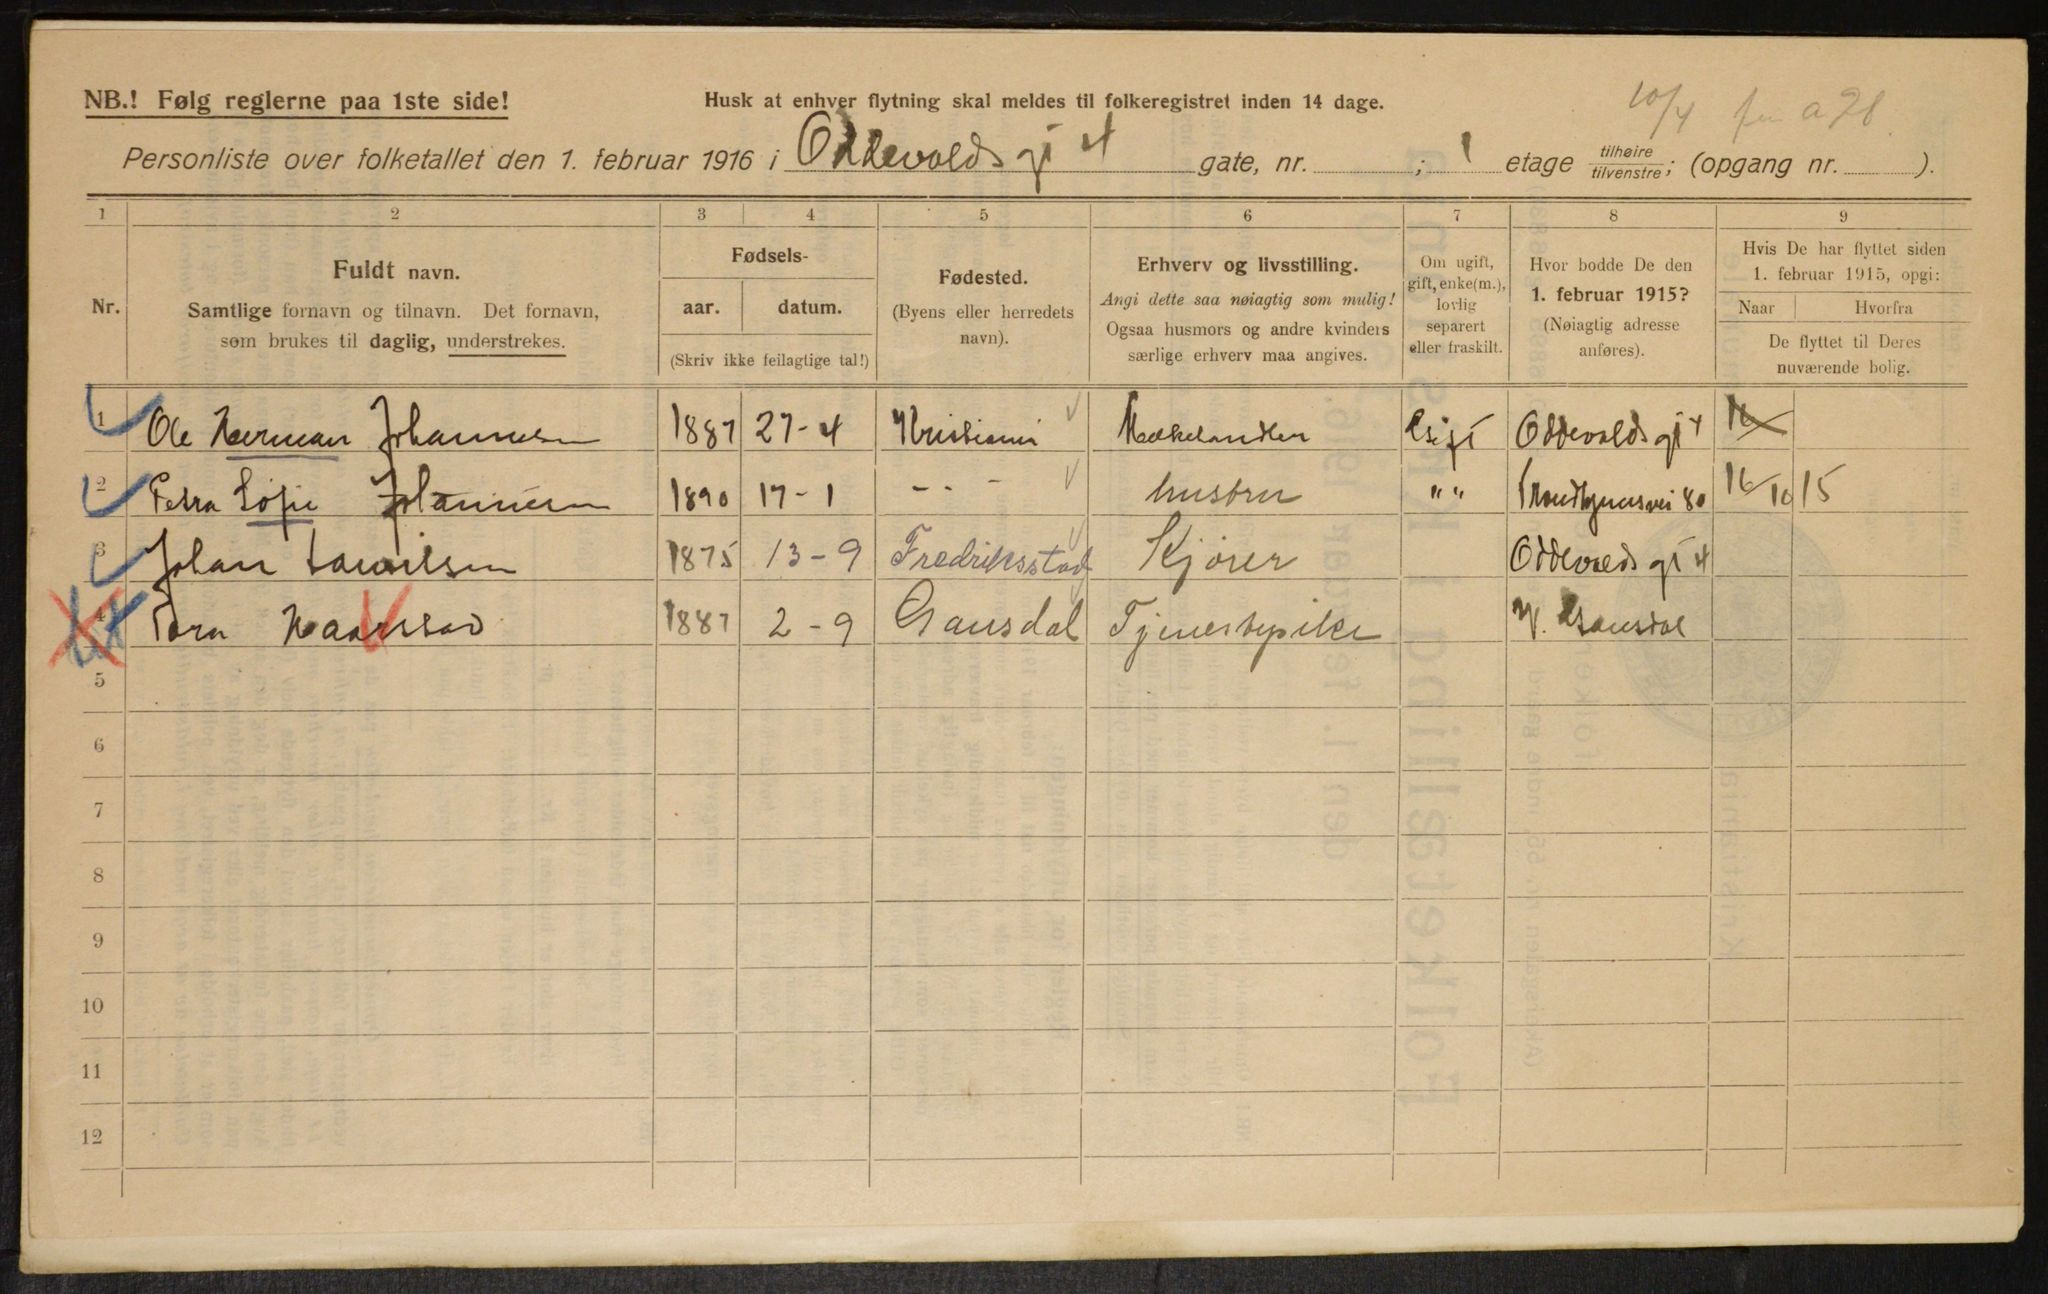 NB.! Følg reglerne paa 1ste side!
Husk at enhver flytning skal meldes til folkeregistret inden 14 dage.
10/4
Personliste over folketallet den 1. februar 1916 i Oddevolds gt 4 gate, nr. ; 1 etage tilhøire/tilvenstre; (opgang nr. ).
1 2 3 4 5 6 7 8 9
Nr.
Fuldt navn.
Samtlige fornavn og tilnavn. Det fornavn,
som brukes til daglig, understrekes.
Fødsels-
aar. datum.
(Skriv ikke feilagtige tal!)
Fødested.
(Byens eller herredets
navn).
Erhverv og livsstilling.
Angi dette saa nøiagtig som mulig!
Ogsaa husmors og andre kvinders
særlige erhverv maa angives.
Om ugift,
gift, enke(m.),
lovlig
separert
eller fraskilt.
Hvor bodde De den
1. februar 1915?
(Nøiagtig adresse
anføres).
Hvis De har flyttet siden
1. februar 1915, opgi:
Naar Hvorfra
De flyttet til Deres
nuværende bolig.
1 Ole Herman Johannesen 1887 27-4 Kristiania Melkehandler Gift Oddevolds gt 4 16
2 Petra Sofie Johannesen 1890 17-1 - - - hustru " " Trondhjemsvei 80 16/10 15
3 Johan Lauritsen 1875 13-9 Fredriksstad Kjører Oddevolds gt 4
4 Tora 1887 2-9 Gausdal Tjenestepike V. Gausdal
5
6
7
8
9
10
11
12